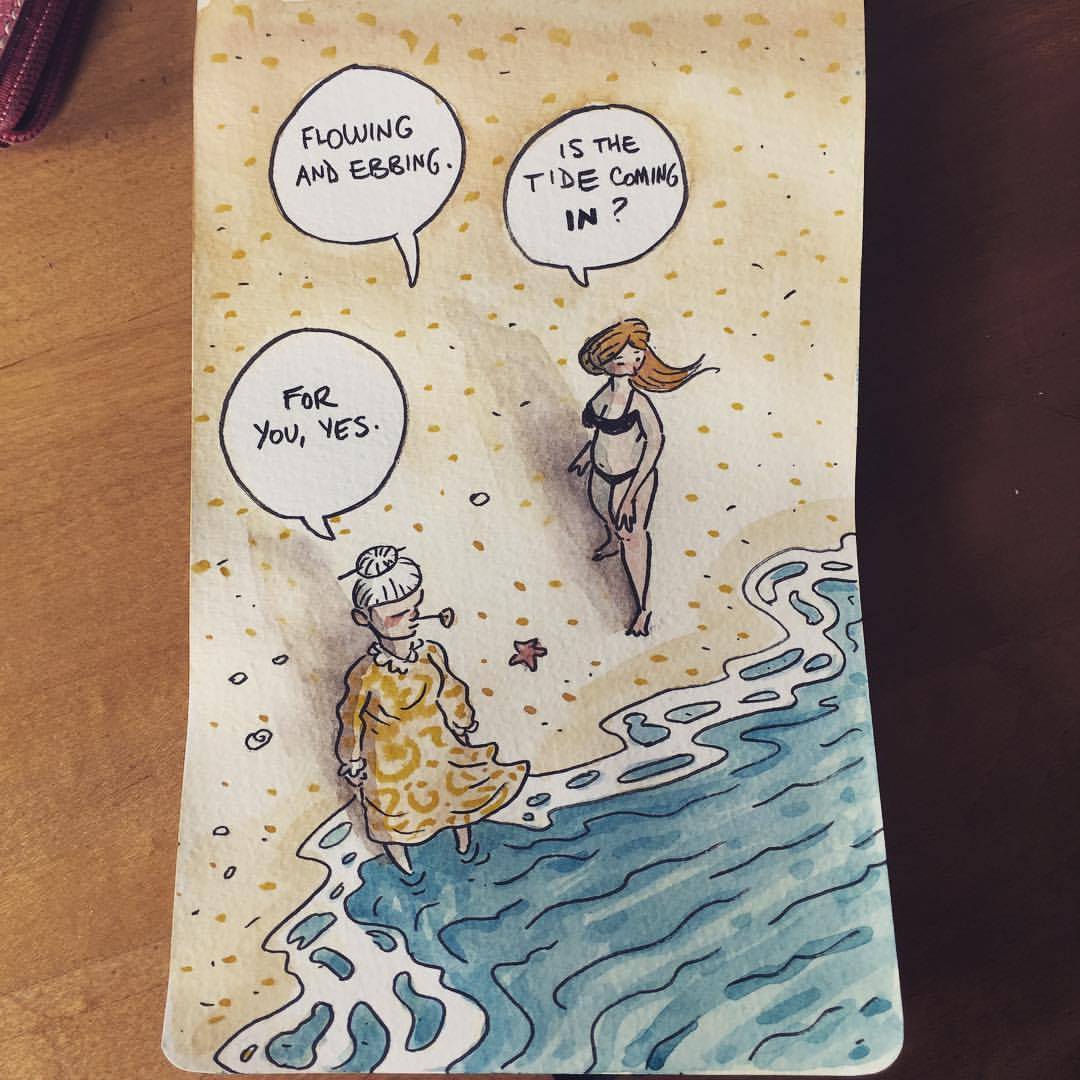 FLOWING
AND EBBING.
IS THE
TIDE COMING
IN?
FOR
YOU, YES.